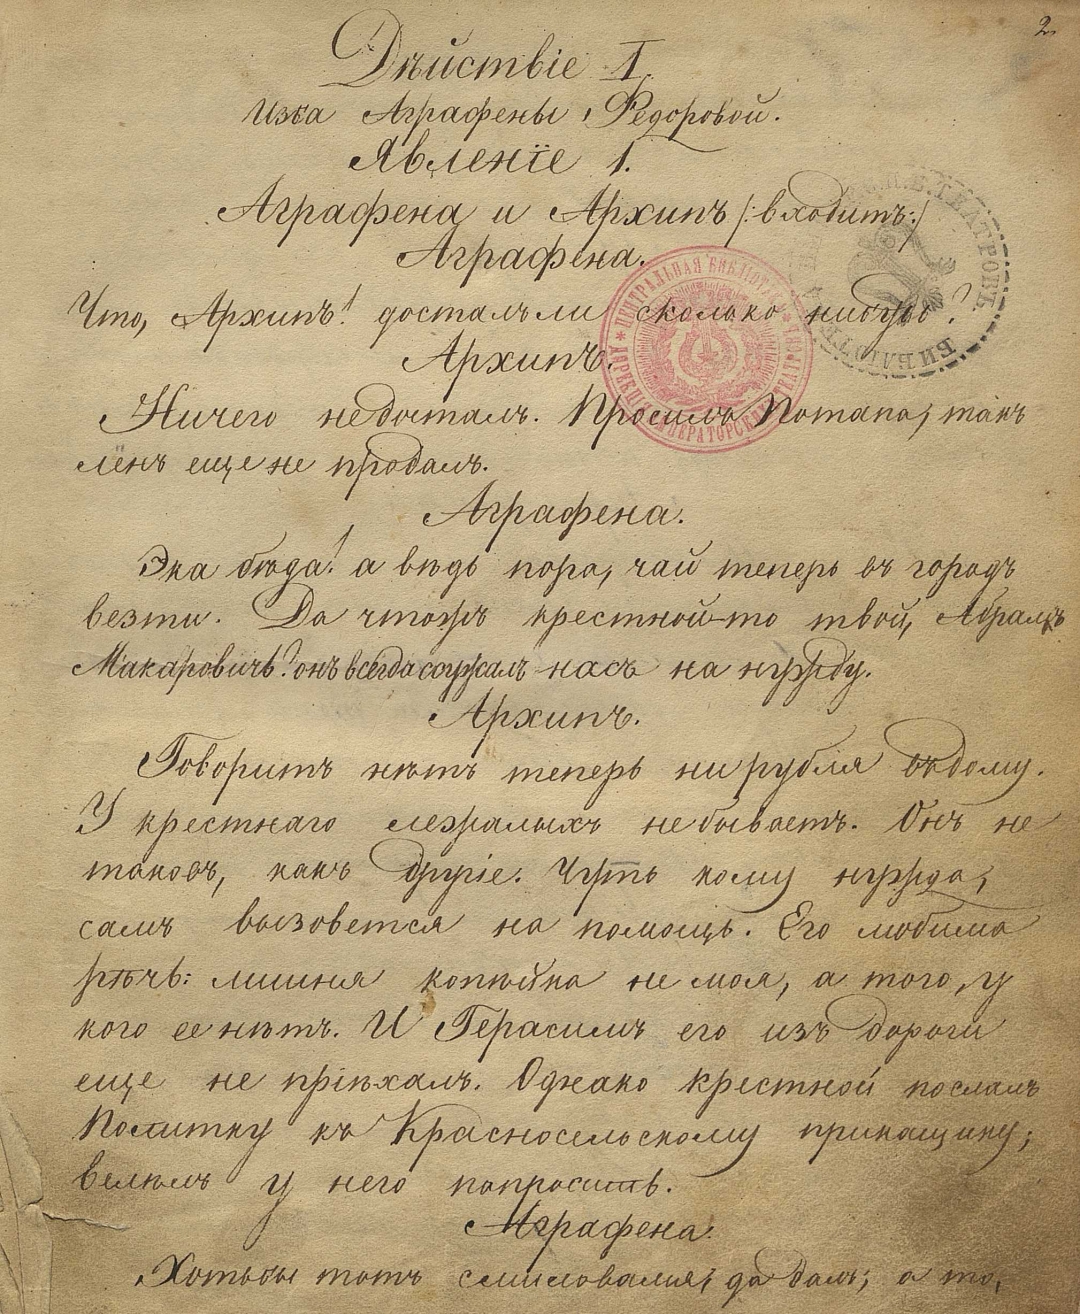 2.
Дѣйствіе I.
Изба Аграфены Ѳедоровой.
Явленіе 1.
Аграфена и Архипъ /:входитъ:/
Аграфена.
Что, Архипъ! досталъ ли сколько нибудь?
Архипъ.
Ничего не досталъ. Просилъ Потапа, такъ
лёнъ еще не продалъ.
Аграфена.
Эка бѣда! а вѣдь пора, чай теперь въ городъ
везти. Да чтожъ крестной-то твой, Абрамъ
Макаровичь? онъ всегда ссужалъ насъ на нужду.
Архипъ.
Говоритъ нѣтъ теперь ни рубля въ дому.
У крестнаго лежалыхъ не бываетъ. Онъ не
таковъ, какъ другіе. Чуть кому нужда,
самъ вызовется на помощь. Его любима
рѣчь: лишня копѣйка не моя, а того, у
кого ее нѣтъ. И Герасимъ его изъ дороги
еще не пріѣхалъ. Однако крестной послалъ
Политку къ Красносельскому прикащику;
велѣлъ у него попросить.
Аграфена.
Хотьбы тотъ смиловался, да далъ; а то,
ЦЕНТРАЛЬНАЯ БИБЛІОТЕКА
ИМПЕРАТОРСКИХЪ ТЕАТРОВЪ
ТЕАТРОВЪ
БИБЛІОТЕКА